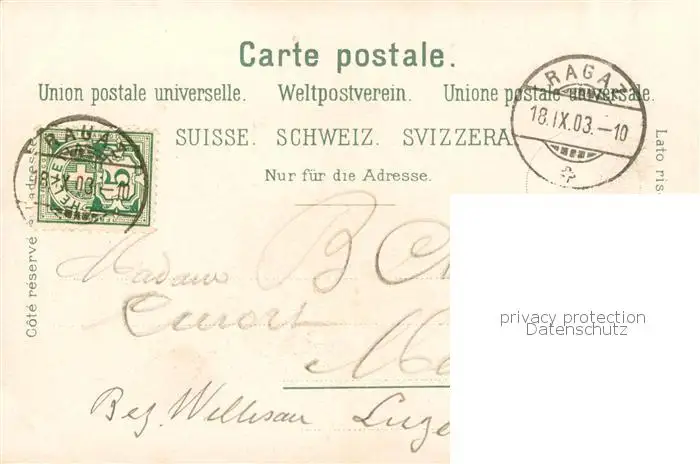 Carte postale.
Union postale universelle. Weltpostverein. Unione postale universale.
SUISSE. SCHWEIZ. SVIZZERA
Nur für die Adresse.
RAGAZ
18.IX.03.–10
RAGAZ
18.IX.03.–10
HELVE
5
Côté réservé à l'adresse
Lato ris
Madame B
Kurort
Bez. Willisau Luze
privacy protection
Datenschutz